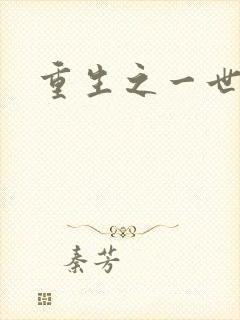 重生之一世
秦芳